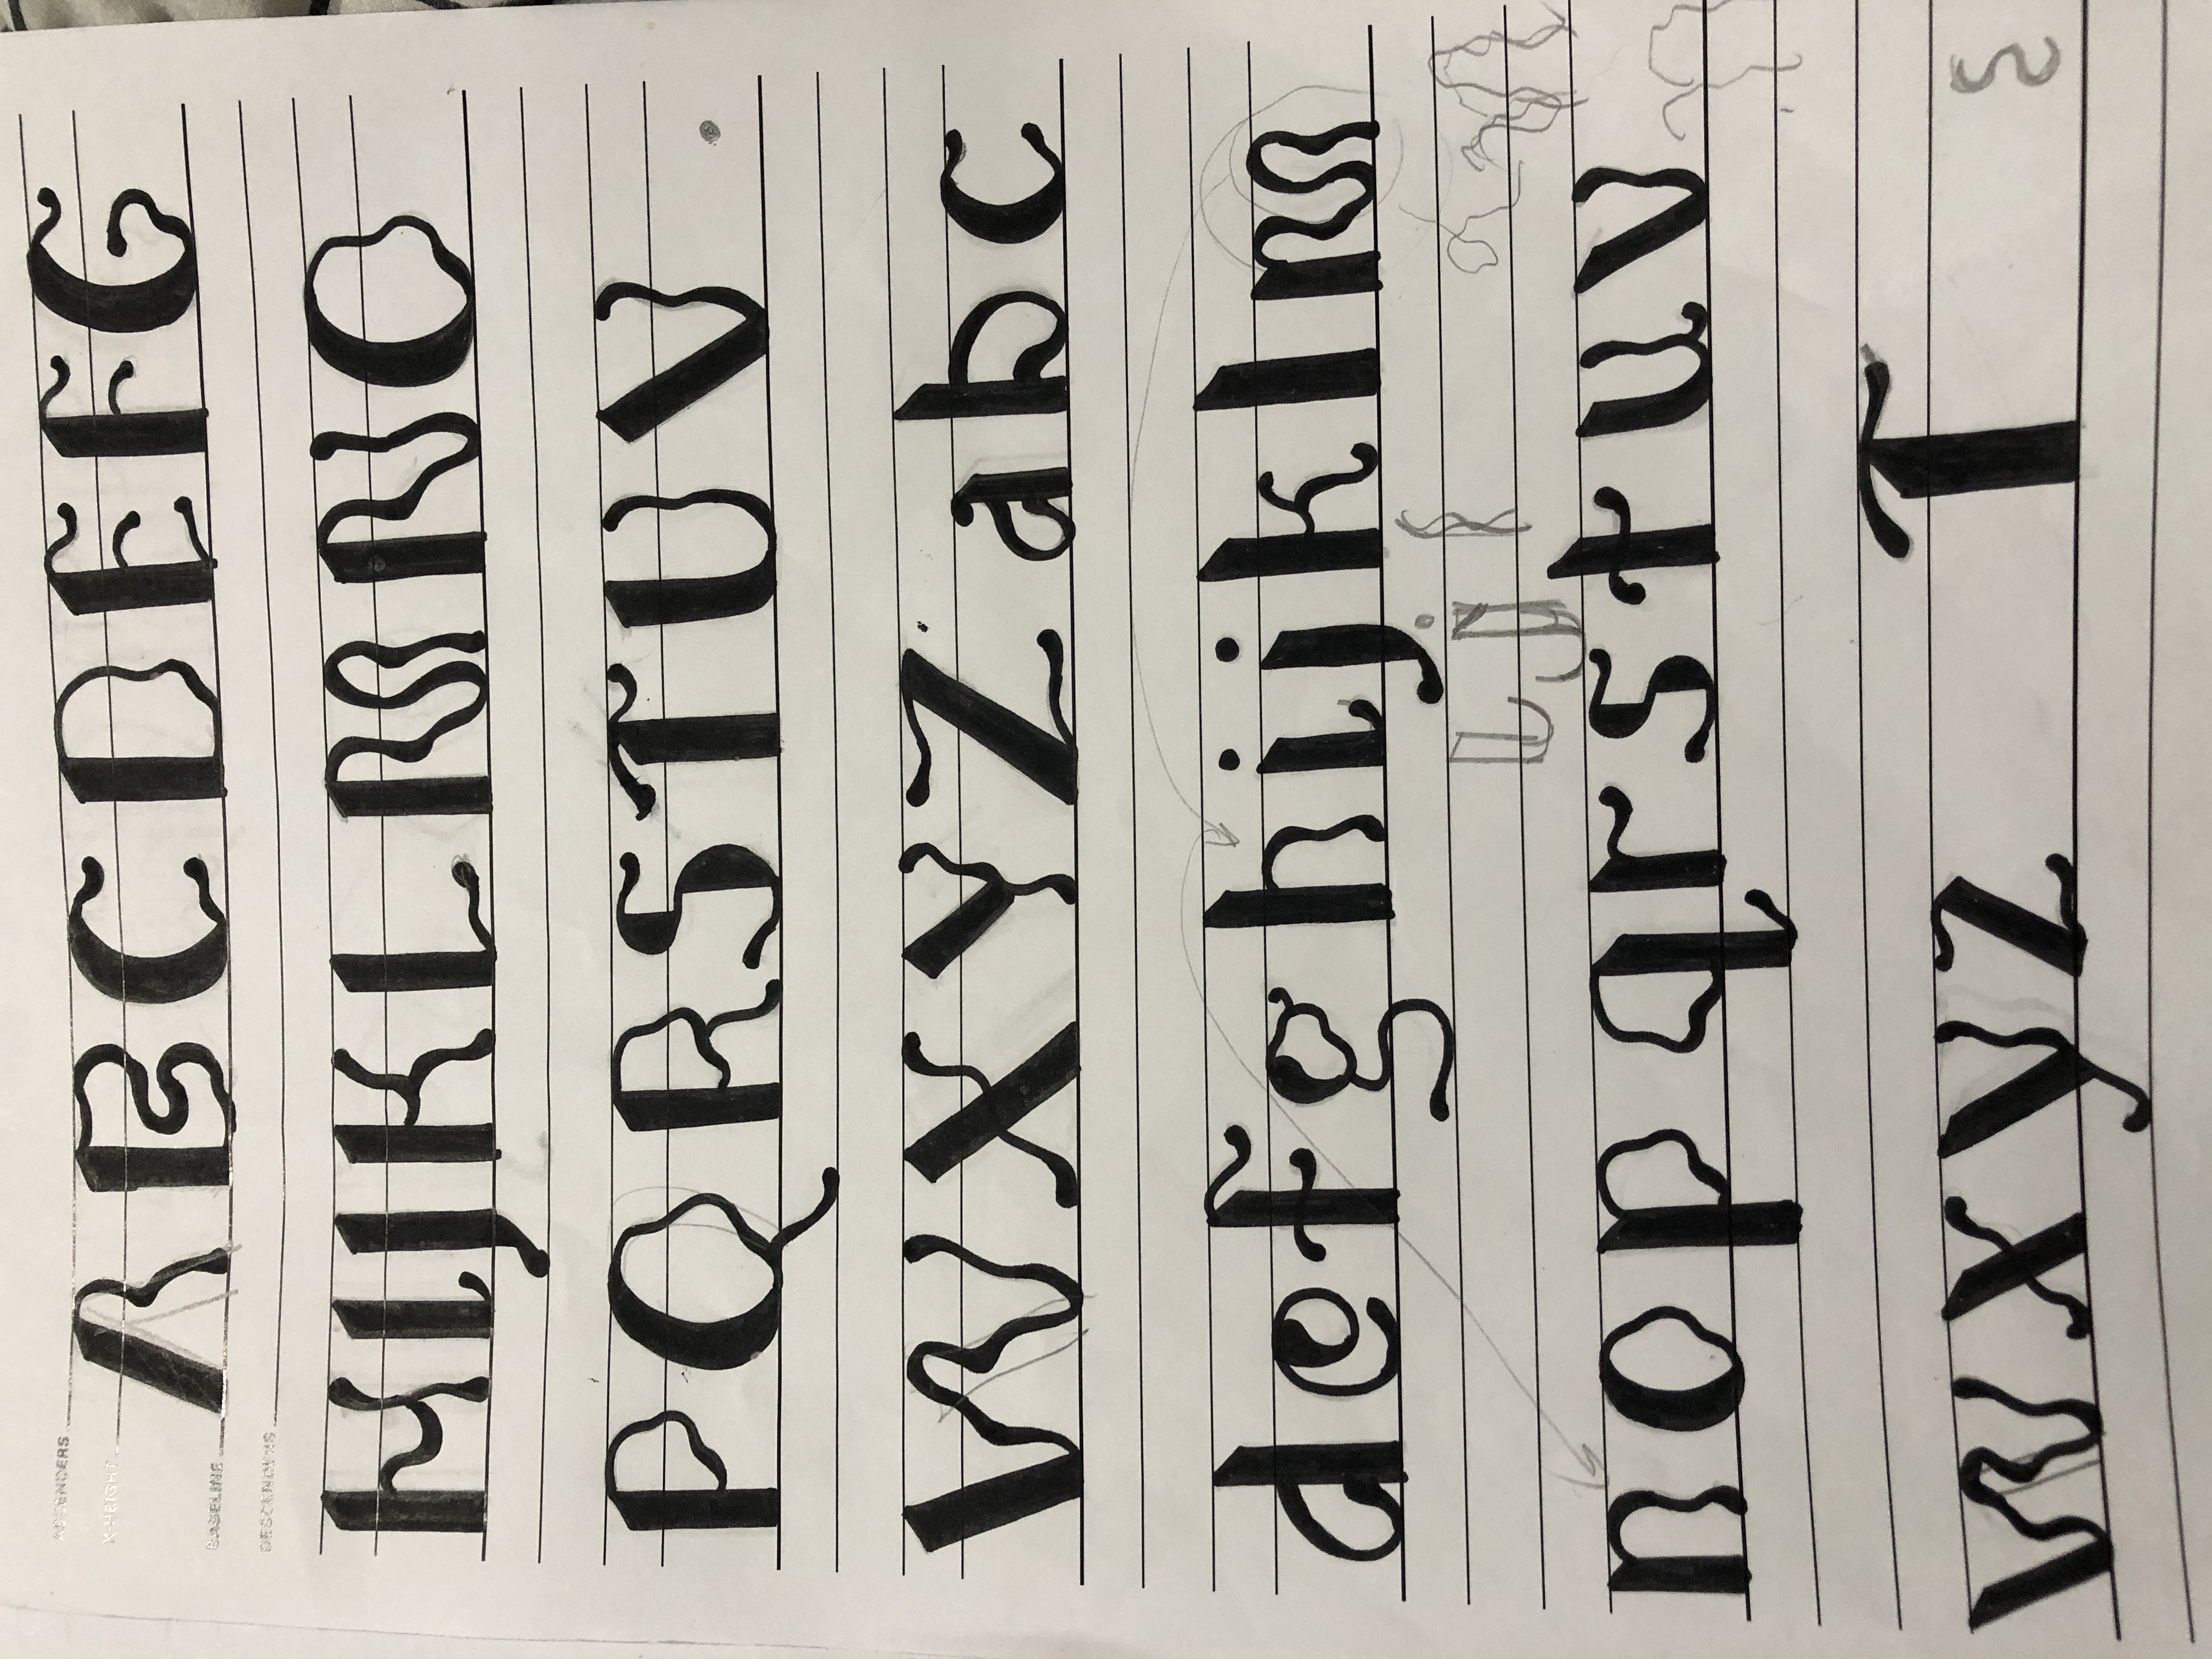 ASCENDERS
X-HEIGHT
A B C D E F G
BASELINE
DESCENDERS
H I J K L M N O
P Q R S T U V
W X Y Z a b c
d e f g h i j k l m
i j
n o p q r s t u v
w x y z T